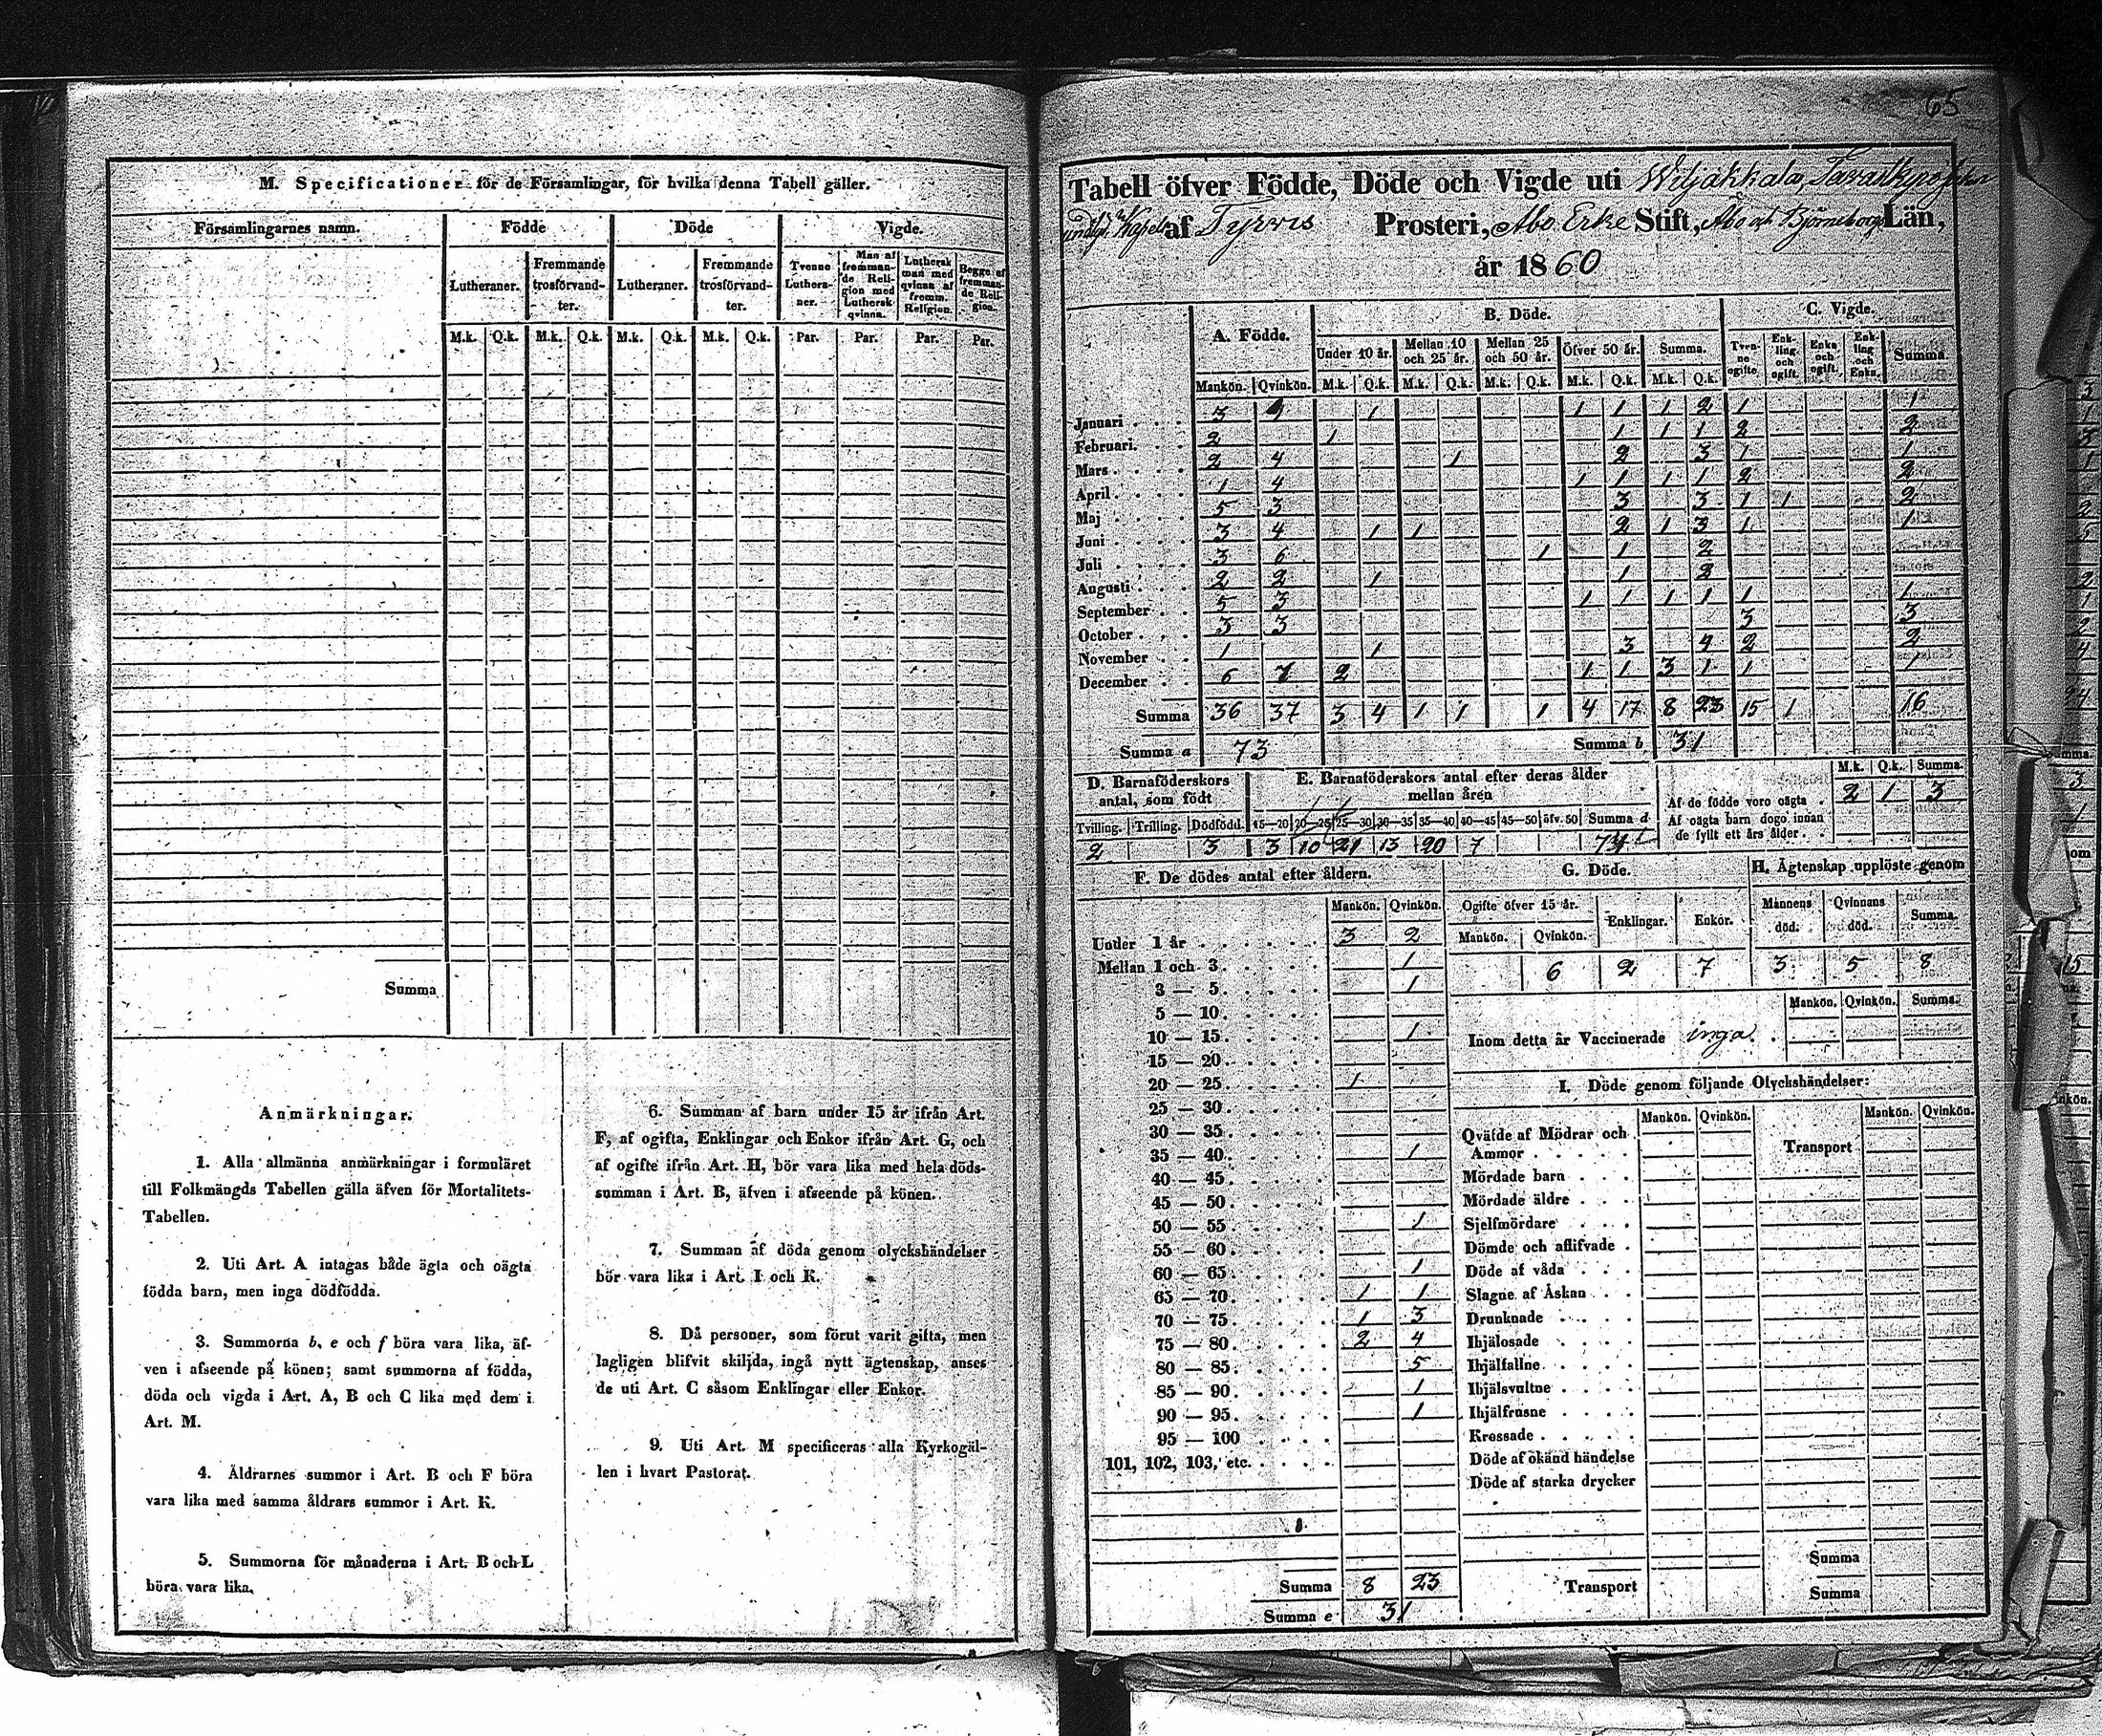 M. Specificationer för de Församlingar, för hvilka denna Tabell gäller.
Församlingarnes namn. Födde Döde Vigde.
Lutheraner. Fremmande trosförvandter. Lutheraner. Fremmande trosförvandter. Tvenne Lutheraner. Man af fremmande Religion med Luthersk qvinna. Luthersk man med qvinna af fremm. Religion. Begge af fremmande Religion.
M.k. Q.k. M.k. Q.k. M.k. Q.k. M.k. Q.k. Par. Par. Par. Par.
Summa
Anmärkningar.
1. Alla allmänna anmärkningar i formuläret
till Folkmängds Tabellen gälla äfven för Mortalitets-
Tabellen.
2. Uti Art. A intagas både ägta och oägta
födda barn, men inga dödfödda.
3. Summorna b, e och f böra vara lika, äf-
ven i afseende på könen; samt summorna af födda,
döda och vigda i Art. A, B och C lika med dem i
Art. M.
4. Åldrarnes summor i Art. B och F böra
vara lika med samma åldrars summor i Art. K.
5. Summorna för månaderna i Art. B och L
böra vara lika.
6. Summan af barn under 15 år ifrån Art.
F, af ogifta, Enklingar och Enkor ifrån Art. G, och
af ogifte ifrån Art. H, bör vara lika med hela döds-
summan i Art. B, äfven i afseende på könen.
7. Summan af döda genom olyckshändelser
bör vara lika i Art. I och K.
8. Då personer, som förut varit gifta, men
lagligen blifvit skiljda, ingå nytt ägtenskap, anses
de uti Art. C såsom Enklingar eller Enkor.
9. Uti Art. M specificeras alla Kyrkogäl-
len i hvart Pastorat.
65
Tabell öfver Födde, Döde och Vigde uti Wiljakkala, Tavastkyro
Kapell af Tyrvis Prosteri, Åbo Erke Stift, Åbo och Björneborgs Län,
år 1860
A. Födde. B. Döde. C. Vigde.
Under 10 år. Mellan 10 och 25 år. Mellan 25 och 50 år. Öfver 50 år. Summa. Tvenne ogifte. Enkling och ogift. Enka och ogift. Enkling och Enka. Summa
Mankön. Qvinkön. M.k. Q.k. M.k. Q.k. M.k. Q.k. M.k. Q.k. M.k. Q.k.
Januari 3 1 1 1 1 2 1 1
Februari. 2 1 1 1 1 2 2
Mars 2 4 1 2 3 1 1
April 1 4 1 1 1 1 2 2
Maj 5 3 3 3 1 1 2
Juni 3 4 1 1 2 1 3 1 1
Juli 3 6 1 1 2
Augusti 2 2 1 1 2
September 5 3 1 1 1 1 1 1
October 3 3 3 3
November 1 1 3 4 2 2
December 6 7 2 1 1 3 1 1 1
Summa 36 37 3 4 1 1 1 4 17 8 23 15 1 16
Summa a 73 Summa b 31
D. Barnaföderskors antal, som födt
E. Barnaföderskors antal efter deras ålder mellan åren
Tvilling. Trilling. Dödfödd. 15—20 20—25 25—30 30—35 35—40 40—45 45—50 öfv. 50 Summa d
2 3 3 10 21 13 20 7 74
M.k. Q.k. Summa
Af de födde voro oägta 2 1 3
Af oägta barn dogo innan
de fyllt ett års ålder.
F. De dödes antal efter åldern.
Mankön. Qvinkön.
Under 1 år 3 2
Mellan 1 och 3. 1
3 — 5. 1
5 — 10.
10 — 15. 1
15 — 20.
20 — 25. 1
25 — 30.
30 — 35.
35 — 40. 1
40 — 45.
45 — 50.
50 — 55. 1
55 — 60.
60 — 65. 1
65 — 70. 1 1
70 — 75. 1 3
75 — 80. 2 4
80 — 85. 5
85 — 90. 1
90 — 95. 1
95 — 100
101, 102, 103, etc.
Summa 8 23
Summa e 31
G. Döde.
Ogifte öfver 15 år. Enklingar. Enkor.
Mankön. Qvinkön.
6 2 7
H. Ägtenskap upplöste genom
Männens död. Qvinnans död. Summa.
3 5 8
Mankön. Qvinkön. Summa.
Inom detta år Vaccinerade inga.
I. Döde genom följande Olyckshändelser:
Mankön. Qvinkön. Mankön. Qvinkön.
Qväfde af Mödrar och
Ammor Transport
Mördade barn
Mördade äldre
Sjelfmördare
Dömde och aflifvade
Döde af våda
Slagne af Åskan
Drunknade
Ihjälosade
Ihjälfallne
Ihjälsvultne
Ihjälfrusne
Krossade
Döde af okänd händelse
Döde af starka drycker
Summa
Transport Summa